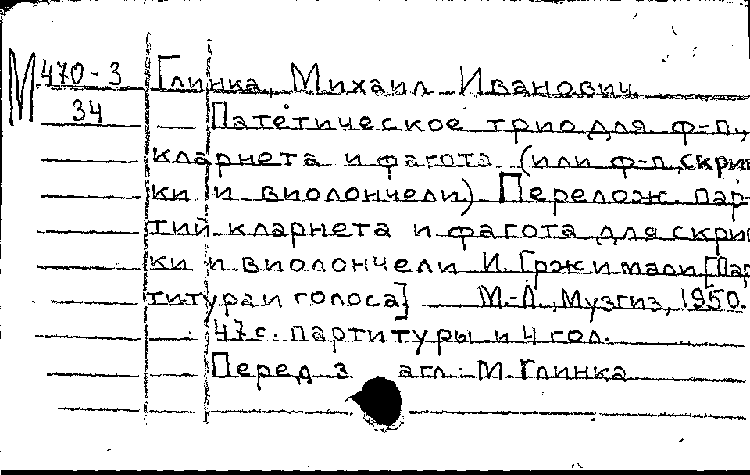 М 470-3 Глинка, Михаил Иванович.
34 Патетическое трио для ф-п.,
кларнета и фагота (или ф-п, скрип
ки и виолончели) Перелож. пар-
тий кларнета и фагота для скрип
ки и виолончели И. Гржимали [Пар
титура и голоса] М.-Л., Музгиз, 1950.
47 с. партитуры и 4 гол.
Перед загл.: М. Глинка